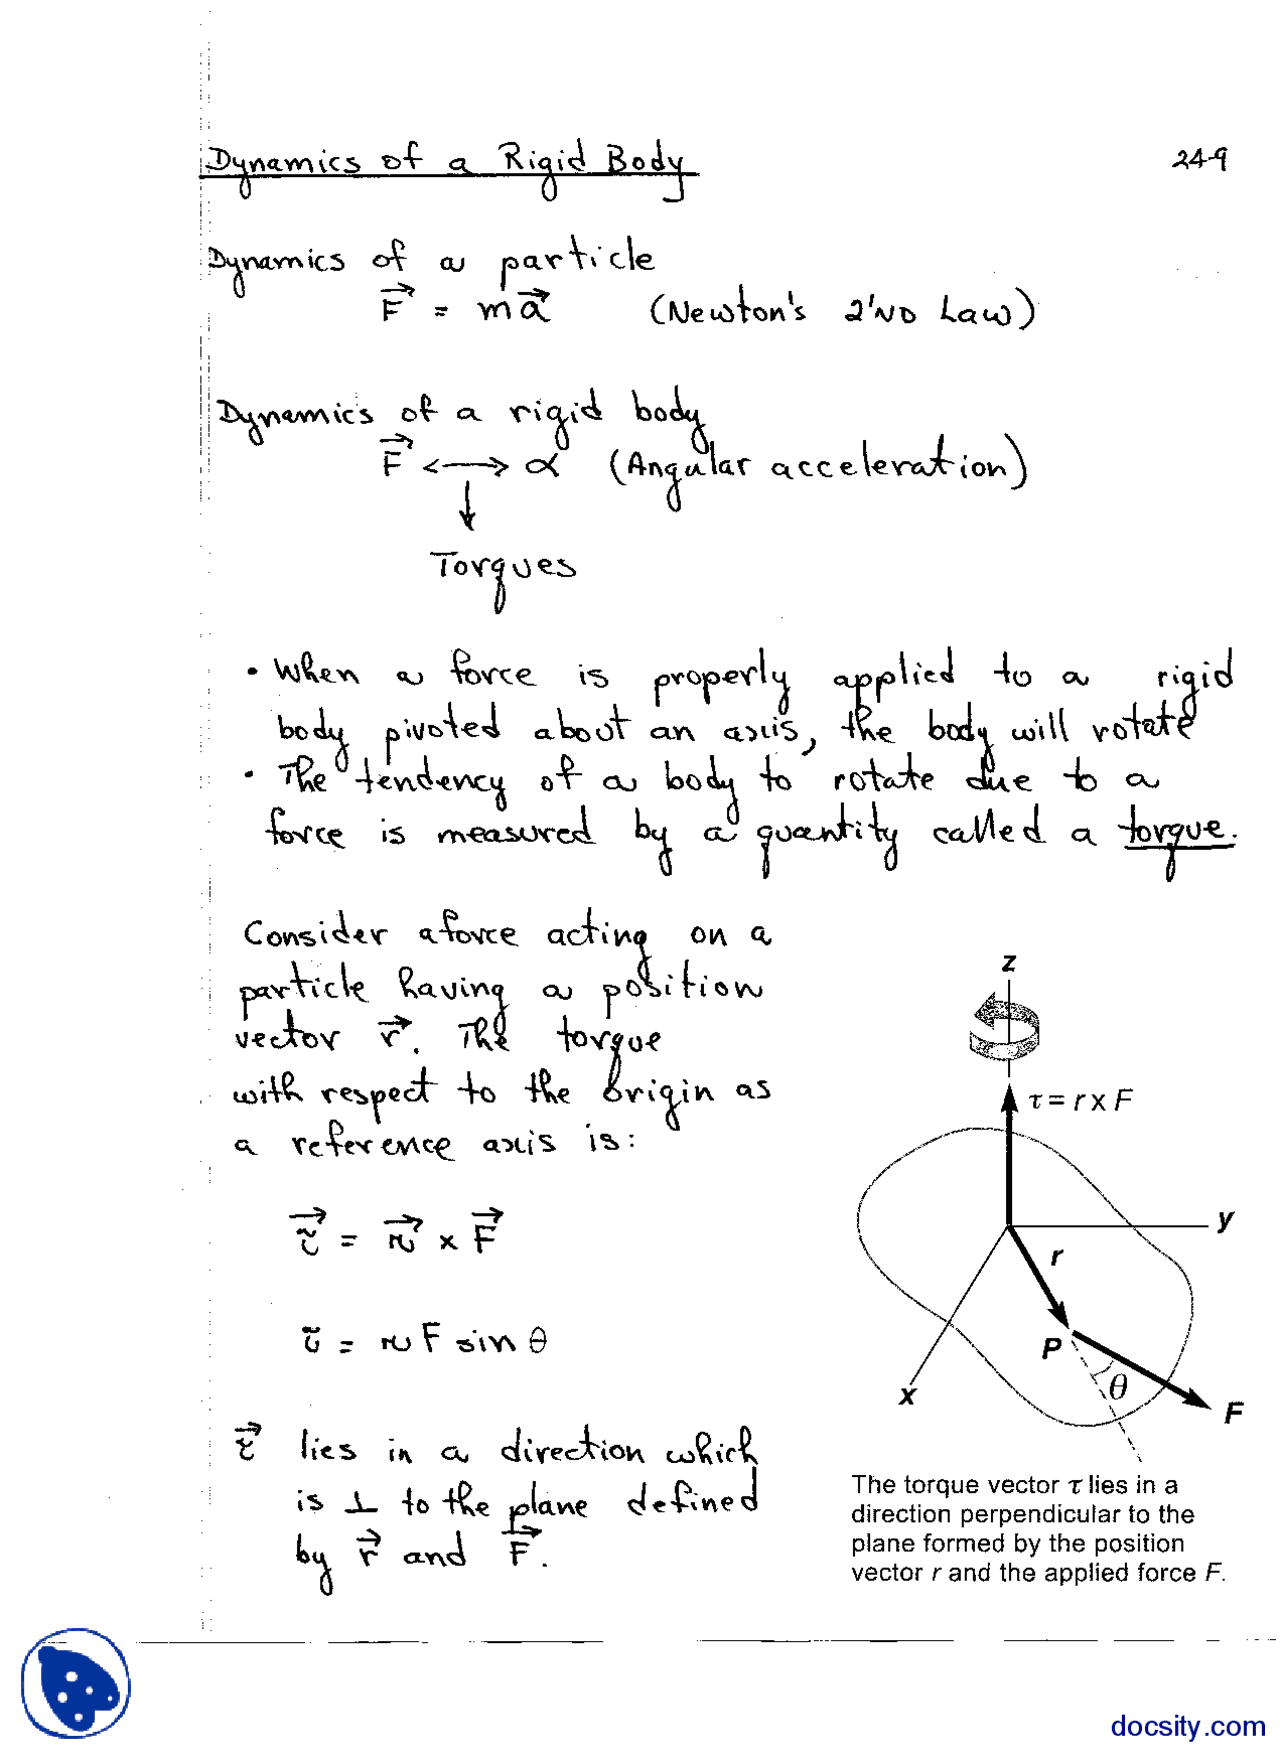 Dynamics of a Rigid Body
24-9
Dynamics of a particle
F⃗ = ma⃗ (Newton's 2'ND Law)
Dynamics of a rigid body
F⃗ <—> α (Angular acceleration)
↓
Torques
• When a force is properly applied to a rigid
body pivoted about an axis, the body will rotate
• The tendency of a body to rotate due to a
force is measured by a quantity called a torque.
Consider a force acting on a
particle having a position
vector r⃗. The torque
with respect to the origin as
a reference axis is:
τ⃗ = r⃗ x F⃗
τ = r F sin θ
τ⃗ lies in a direction which
is ⊥ to the plane defined
by r⃗ and F⃗.
z
τ = r x F
y
r
P
θ
x
F
The torque vector τ lies in a
direction perpendicular to the
plane formed by the position
vector r and the applied force F.
docsity.com